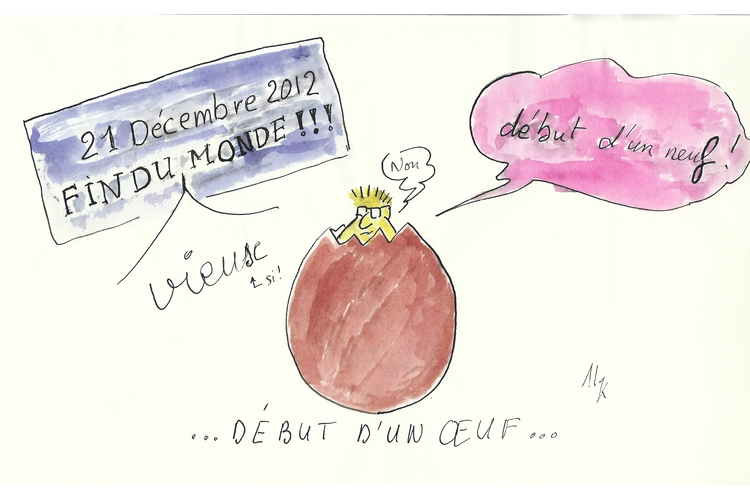 21 Décembre 2012
FIN DU MONDE !!!
Non
début d'un neuf !
vieuse
si !
...DÉBUT D'UN ŒUF...